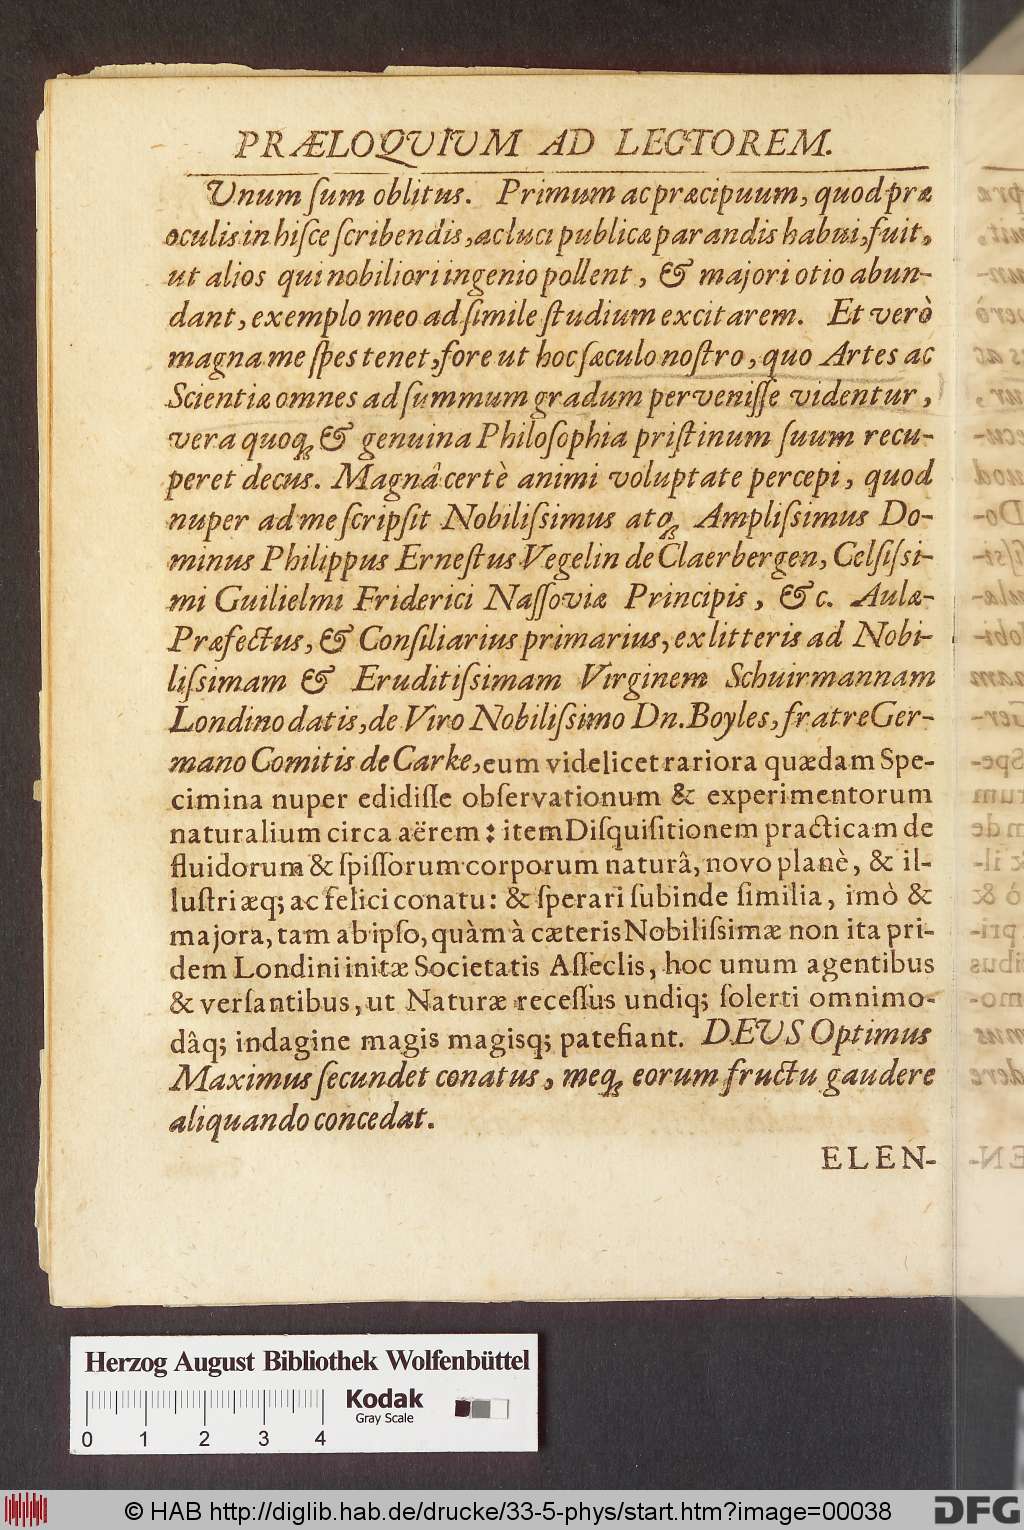 PRÆLOQVIVM AD LECTOREM.
Unum ſum oblitus. Primum ac præcipuum, quod præ
oculis in hiſce ſcribendis, ac luci publicæ parandis habui, fuit,
ut alios qui nobiliori ingenio pollent, & majori otio abun-
dant, exemplo meo ad ſimile ſtudium excitarem. Et verò
magna me ſpes tenet, fore ut hoc ſæculo noſtro, quo Artes ac
Scientiæ omnes ad ſummum gradum perveniſſe videntur,
vera quoq; & genuina Philoſophia priſtinum ſuum recu-
peret decus. Magnâ certè animi voluptate percepi, quod
nuper ad me ſcripſit Nobiliſsimus atq; Ampliſsimus Do-
minus Philippus Erneſtus Vegelin de Claerbergen, Celſiſsi-
mi Guilielmi Friderici Naſſoviæ Principis, &c. Aulæ-
Præfectus, & Conſiliarius primarius, ex litteris ad Nobi-
liſsimam & Eruditiſsimam Virginem Schuirmannam
Londino datis, de Viro Nobiliſsimo Dn. Boyles, fratre Ger-
mano Comitis de Carke, eum videlicet rariora quædam Spe-
cimina nuper edidiſſe obſervationum & experimentorum
naturalium circa aërem: item Diſquiſitionem practicam de
fluidorum & ſpiſſorum corporum naturâ, novo planè, & il-
luſtri æq; ac felici conatu: & ſperari ſubinde ſimilia, imò &
majora, tam ab ipſo, quàm à cæteris Nobiliſsimæ non ita pri-
dem Londini initæ Societatis Aſſeclis, hoc unum agentibus
& verſantibus, ut Naturæ receſſus undiq; ſolerti omnimo-
dâq; indagine magis magisq; patefiant. DEUS Optimus
Maximus ſecundet conatus, meq; eorum fructu gaudere
aliquando concedat.
ELEN-
Herzog August Bibliothek Wolfenbüttel
Kodak
Gray Scale
0 1 2 3 4
© HAB http://diglib.hab.de/drucke/33-5-phys/start.htm?image=00038
DFG